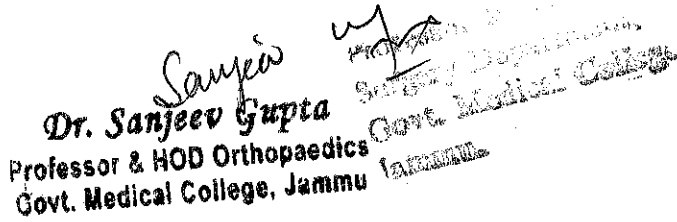 Sanjeev
Dr. Sanjeev Gupta
Professor & HOD Orthopaedics
Govt. Medical College, Jammu
Professor
Surgery Department,
Govt. Medical College,
Jammu.